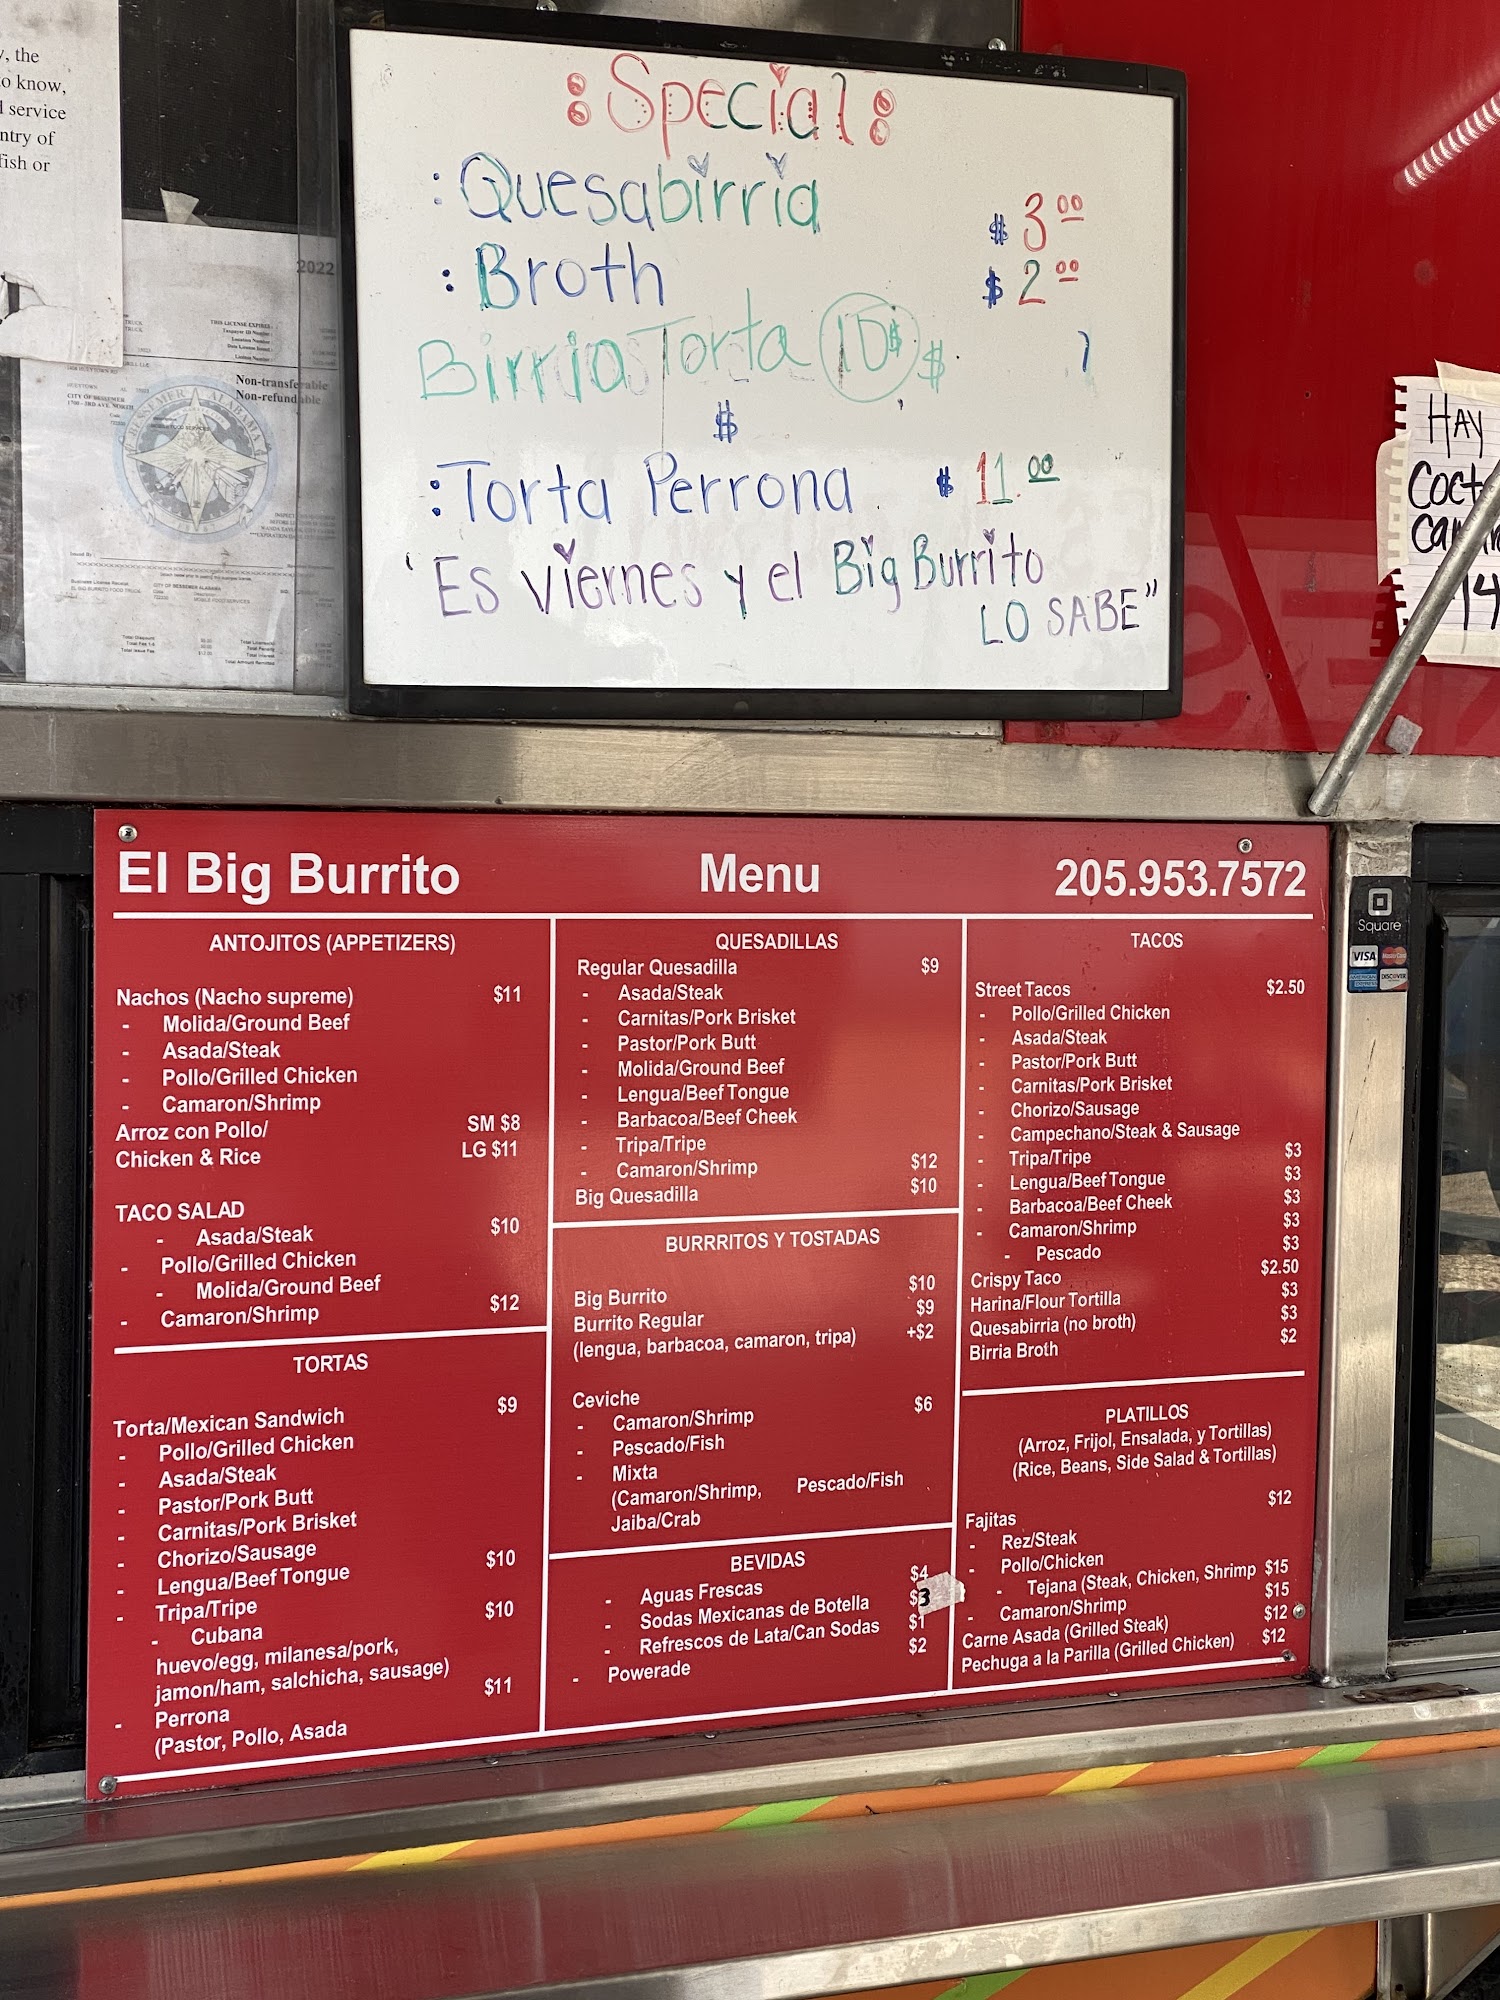 , the
o know,
service
ntry of
fish or
2022
Non-transferable
Non-refundable
CITY OF BESSEMER
BESSEMER ALABAMA
Special
: Quesabirria $3.00
: Broth $2.00
Birria Torta 10$ $
$
: Torta Perrona $11.00
"Es viernes y el Big Burrito
LO SABE"
HAY
Coct
Ca
14
El Big Burrito Menu 205.953.7572
ANTOJITOS (APPETIZERS)
Nachos (Nacho supreme) $11
- Molida/Ground Beef
- Asada/Steak
- Pollo/Grilled Chicken
- Camaron/Shrimp
Arroz con Pollo/ SM $8
Chicken & Rice LG $11
TACO SALAD
- Asada/Steak $10
- Pollo/Grilled Chicken
- Molida/Ground Beef
- Camaron/Shrimp $12
TORTAS
Torta/Mexican Sandwich $9
- Pollo/Grilled Chicken
- Asada/Steak
- Pastor/Pork Butt
- Carnitas/Pork Brisket
- Chorizo/Sausage
- Lengua/Beef Tongue $10
- Tripa/Tripe
- Cubana $10
huevo/egg, milanesa/pork,
jamon/ham, salchicha, sausage)
- Perrona $11
(Pastor, Pollo, Asada
QUESADILLAS
Regular Quesadilla $9
- Asada/Steak
- Carnitas/Pork Brisket
- Pastor/Pork Butt
- Molida/Ground Beef
- Lengua/Beef Tongue
- Barbacoa/Beef Cheek
- Tripa/Tripe
- Camaron/Shrimp $12
Big Quesadilla $10
BURRRITOS Y TOSTADAS
Big Burrito $10
Burrito Regular $9
(lengua, barbacoa, camaron, tripa) +$2
Ceviche $6
- Camaron/Shrimp
- Pescado/Fish
- Mixta
(Camaron/Shrimp, Pescado/Fish
Jaiba/Crab
BEVIDAS
- Aguas Frescas $4
- Sodas Mexicanas de Botella $3
- Refrescos de Lata/Can Sodas $1
- Powerade $2
TACOS
Street Tacos $2.50
- Pollo/Grilled Chicken
- Asada/Steak
- Pastor/Pork Butt
- Carnitas/Pork Brisket
- Chorizo/Sausage
- Campechano/Steak & Sausage
- Tripa/Tripe $3
- Lengua/Beef Tongue $3
- Barbacoa/Beef Cheek $3
- Camaron/Shrimp $3
- Pescado $3
Crispy Taco $2.50
Harina/Flour Tortilla $3
Quesabirria (no broth) $3
Birria Broth $2
PLATILLOS
(Arroz, Frijol, Ensalada, y Tortillas)
(Rice, Beans, Side Salad & Tortillas)
Fajitas $12
- Rez/Steak
- Pollo/Chicken
- Tejana (Steak, Chicken, Shrimp $15
- Camaron/Shrimp $15
Carne Asada (Grilled Steak) $12
Pechuga a la Parilla (Grilled Chicken) $12
Square
VISA MasterCard
AMERICAN EXPRESS DISCOVER